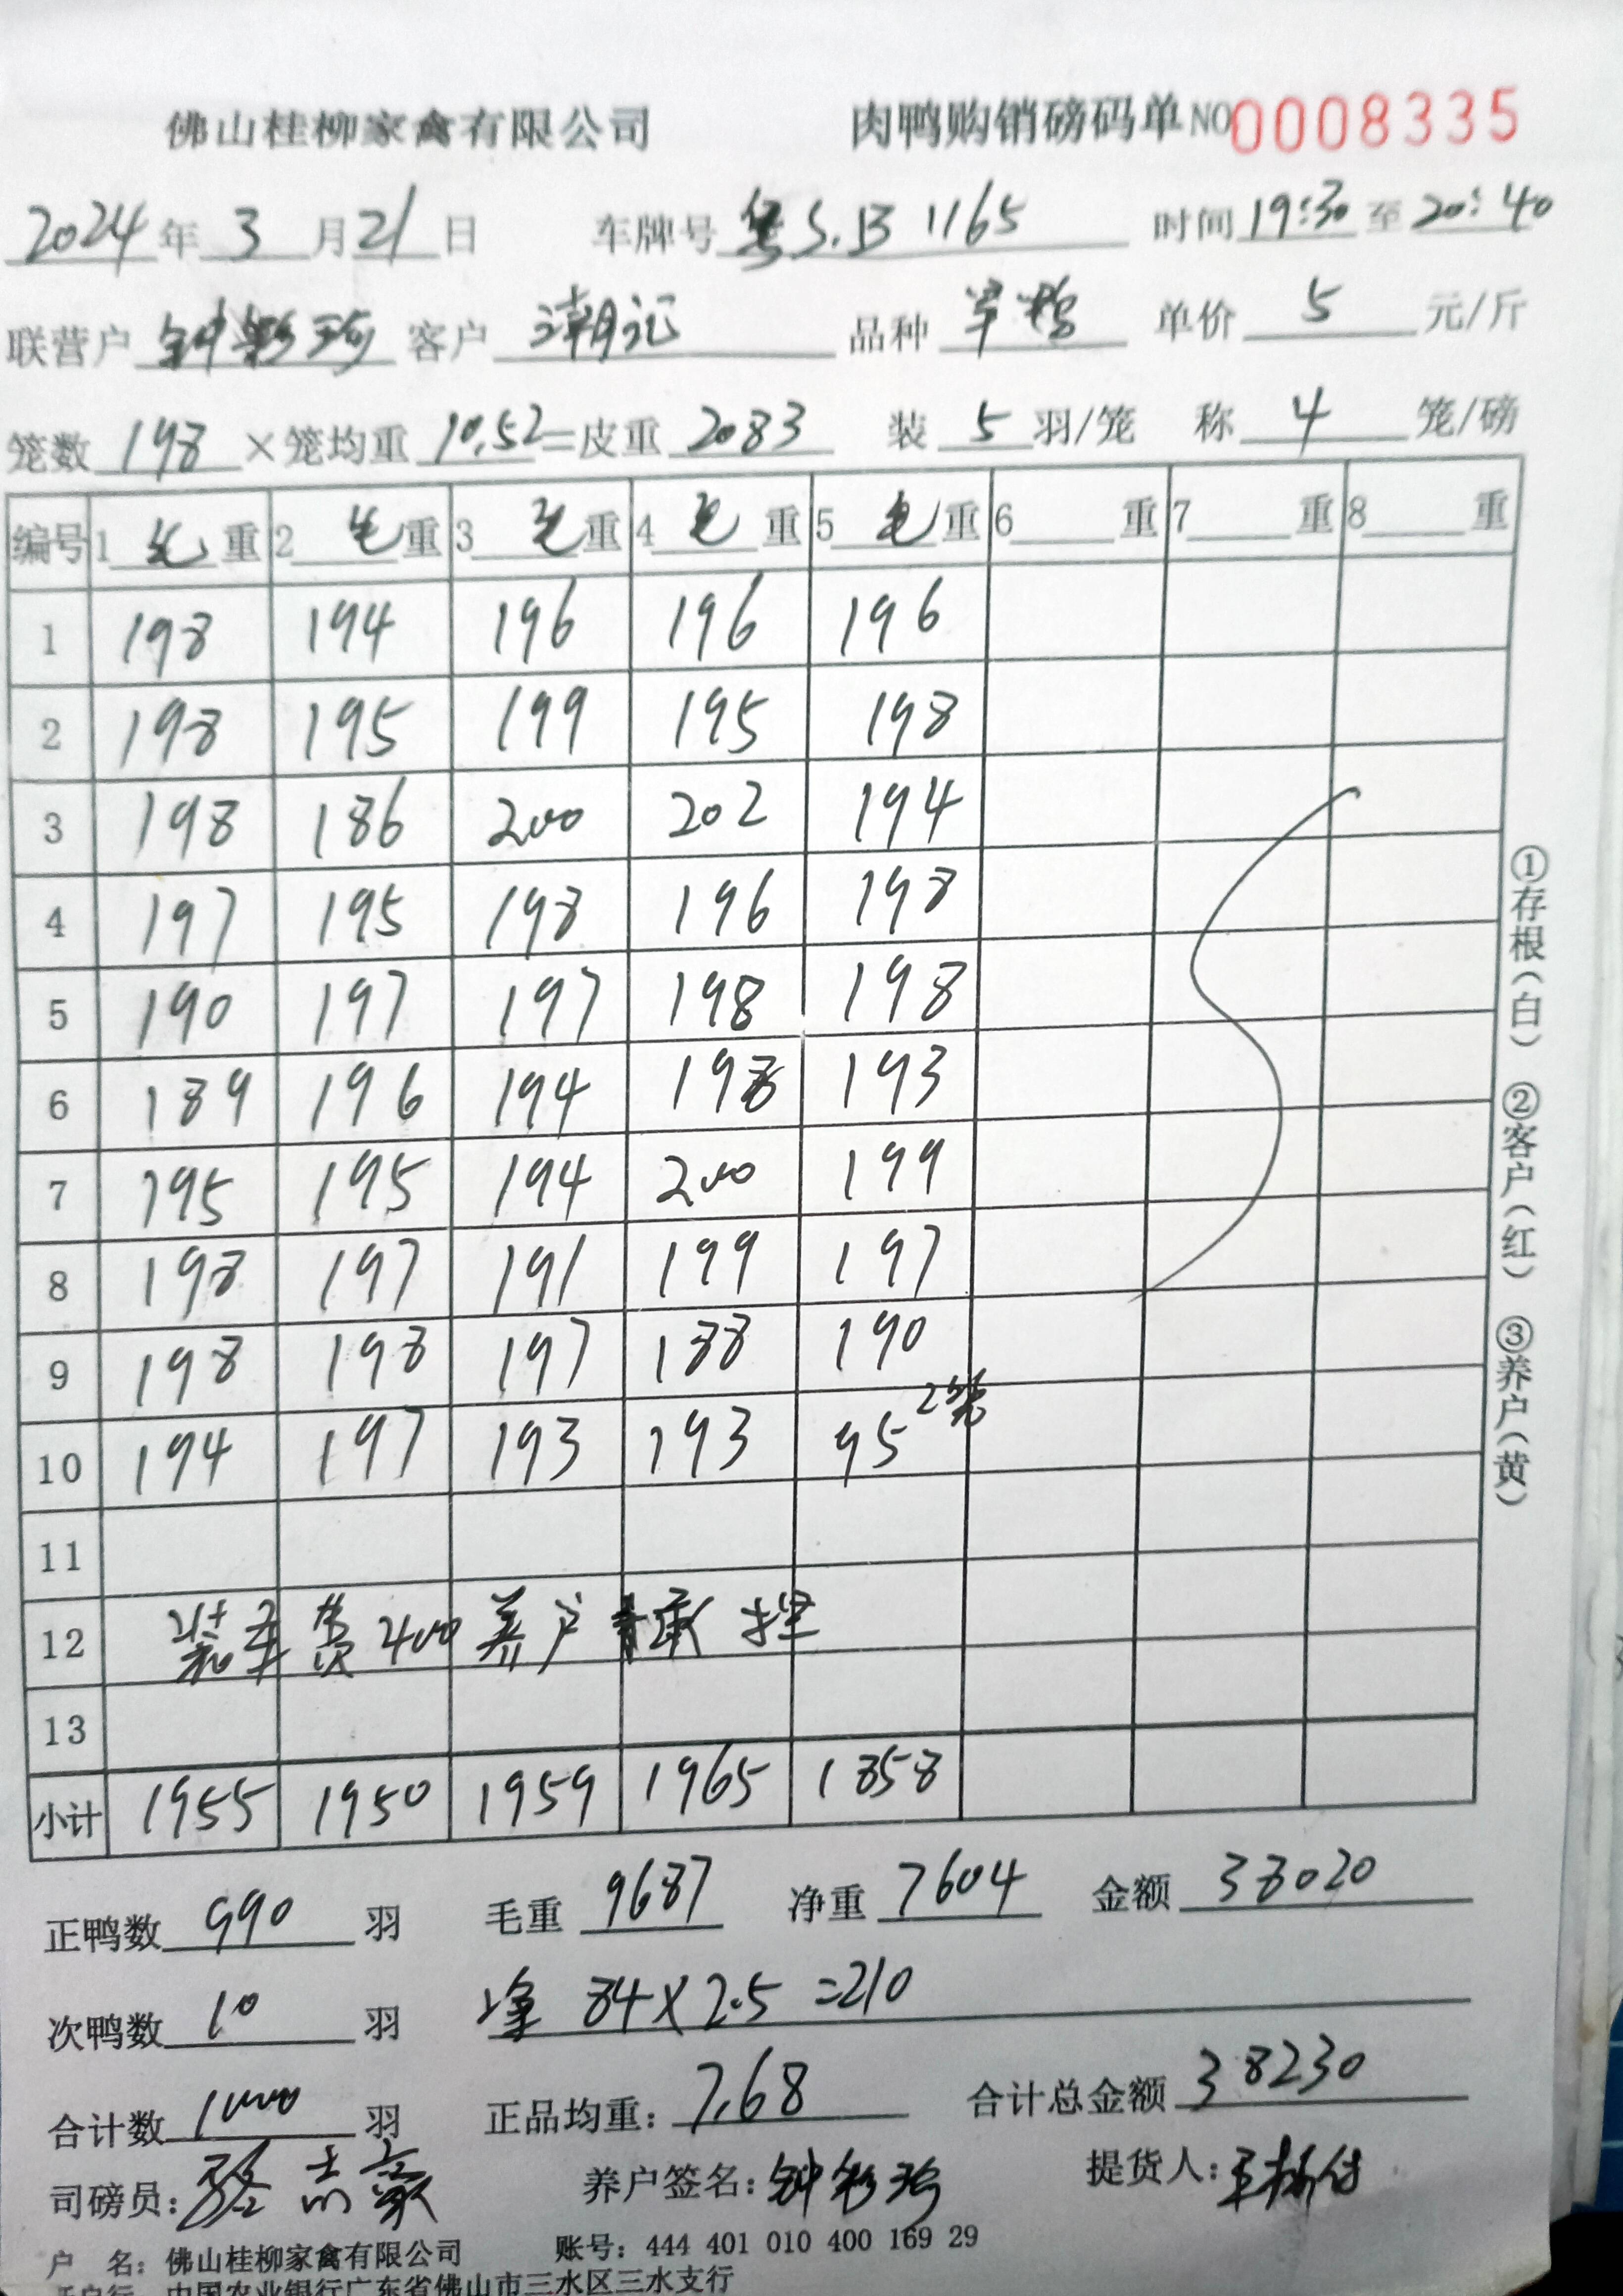 佛山桂柳家禽有限公司 肉鸭购销磅码单 NO 0008335
2024 年 3 月 21 日 车牌号 粤S.B 1165 时间 19:30 至 20:40
联营户 钟彩 客户 潮记 品种 单价 5 元/斤
笼数 198 ×笼均重 10.52 =皮重 2083 装 5 羽/笼 称 4 笼/磅
编号 1 毛 重 2 毛 重 3 毛 重 4 毛 重 5 毛 重 6 重 7 重 8 重
1 198 194 196 196 196
2 198 195 199 195 198
3 198 186 200 202 194
4 197 195 198 196 198
5 190 197 197 198 198
6 189 196 194 198 193
7 195 195 194 200 199
8 198 197 191 199 197
9 198 198 197 188 190
10 194 197 193 193 95 2笼
11
12 装车费400养户承担
13
小计 1955 1950 1959 1965 1858
正鸭数 990 羽 毛重 9687 净重 7604 金额 38020
次鸭数 10 羽 净 84×2.5=210
合计数 1000 羽 正品均重: 7.68 合计总金额 38230
司磅员: 志豪 养户签名: 钟彩 提货人:
户 名: 佛山桂柳家禽有限公司 账号: 444 401 010 400 169 29
开户行 中国农业银行广东省佛山市三水区三水支行
①存根(白) ②客户(红) ③养户(黄)